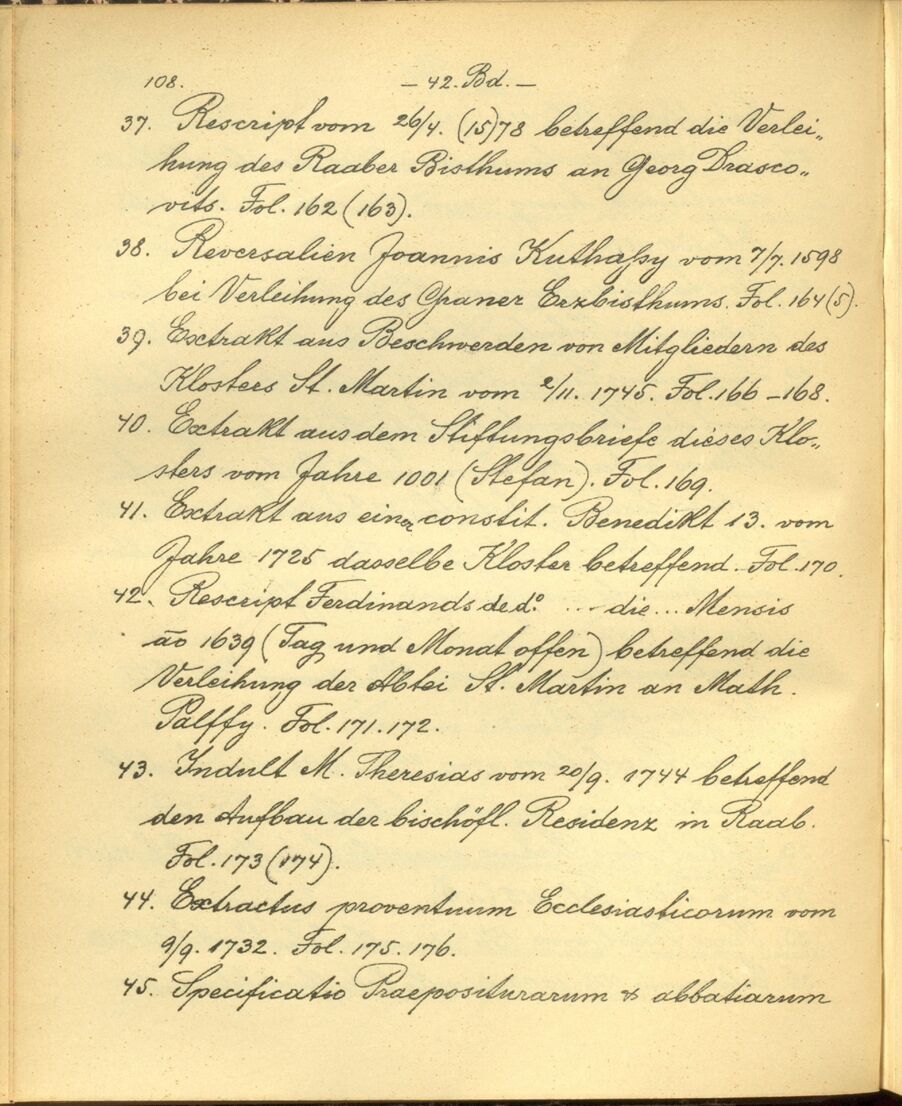 108. — 42. Bd. —
37. Rescript vom 26/4. (15)78 betreffend die Verlei„
hung des Raaber Bisthums an Georg Drasco„
vits. Fol. 162 (163).
38. Reversalien Joannis Kuthaßy vom 7/7. 1598
bei Verleihung des Graner Erzbisthums. Fol. 164 (5).
39. Extrakt aus Beschwerden von Mitgliedern des
Klosters St. Martin vom 2/11. 1745. Fol. 166 – 168.
40. Extrakt aus dem Stiftungsbriefe dieses Klo„
sters vom Jahre 1001 (Stefan). Fol. 169.
41. Extrakt aus einer constit. Benedikt 13. vom
Jahre 1725 dasselbe Kloster betreffend. Fol. 170.
42. Rescript Ferdinands de do. ... die ... Mensis
āo 1639 (Tag und Monat offen) betreffend die
Verleihung der Abtei St. Martin an Math.
Palffy. Fol. 171. 172.
43. Indult M. Theresias vom 20/9. 1744 betreffend
den Aufbau der bischöfl. Residenz in Raab.
Fol. 173 (174).
44. Extractus proventuum Ecclesiasticorum vom
9/9. 1732. Fol. 175. 176.
45. Specificatio Praepositurarum & abbatiarum